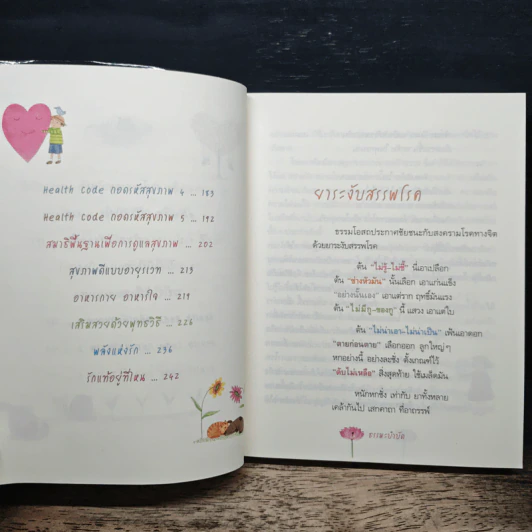 Health Code ถอดรหัสสุขภาพ 4 ... 183
Health Code ถอดรหัสสุขภาพ 5 ... 192
สมาธิพื้นฐานเพื่อการดูแลสุขภาพ ... 202
สุขภาพดีแบบอายุรเวท ... 213
อาหารกาย อาหารใจ ... 219
เสริมสวยด้วยพุทธวิธี ... 226
พลังแห่งรัก ... 236
รักแท้อยู่ที่ไหน ... 242
ยาระงับสรรพโรค
ธรรมโอสถประกาศชัยชนะกับสงครามโรคทางจิต
ด้วยยาระงับสรรพโรค
ต้น "ไม่รู้-ไม่ชี้" นี่เอาเปลือก
ต้น "ช่างหัวมัน" นั้นเลือก เอาแก่นแข็ง
"อย่างนั้นเอง" เอาแต่ราก ฤทธิ์มันแรง
ต้น "ไม่มีกู-ของกู" นี้ แสวง เอาแต่ใบ
ต้น "ไม่น่าเอา-ไม่น่าเป็น" เฟ้นเอาดอก
"ตายก่อนตาย" เลือกออก ลูกใหญ่ๆ
หกอย่างนี้ อย่างละชั่ง ตั้งเกณฑ์ไว้
"ดับไม่เหลือ" สิ่งสุดท้าย ใช้เมล็ดมัน
หนักหกชั่ง เท่ากับ ยาทั้งหลาย
เคล้ากันไป เสกคาถา ที่อาถรรพ์
ธารณาบำบัด